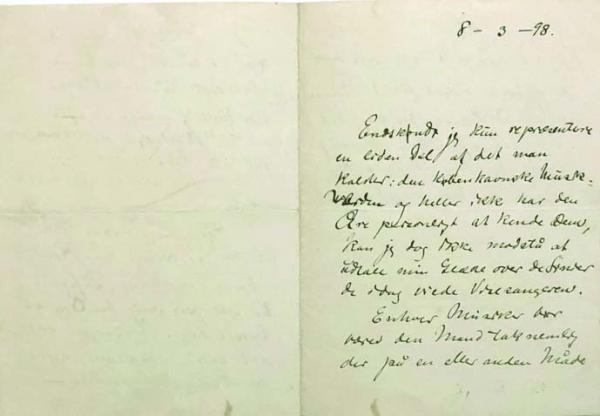 8 – 3 – 98.
Endskjøndt jeg kun representere
en liden Del af det man
kalder: den københavnske Musik-
verden og heller ikke har den
Ære personligt at kende Dem,
kan jeg dog ikke modstå at
udtale min Glæde over de
de idag viede Visesangeren.
Enhver Musiker bør
være den Mand taknemlig
der på en eller anden Måde